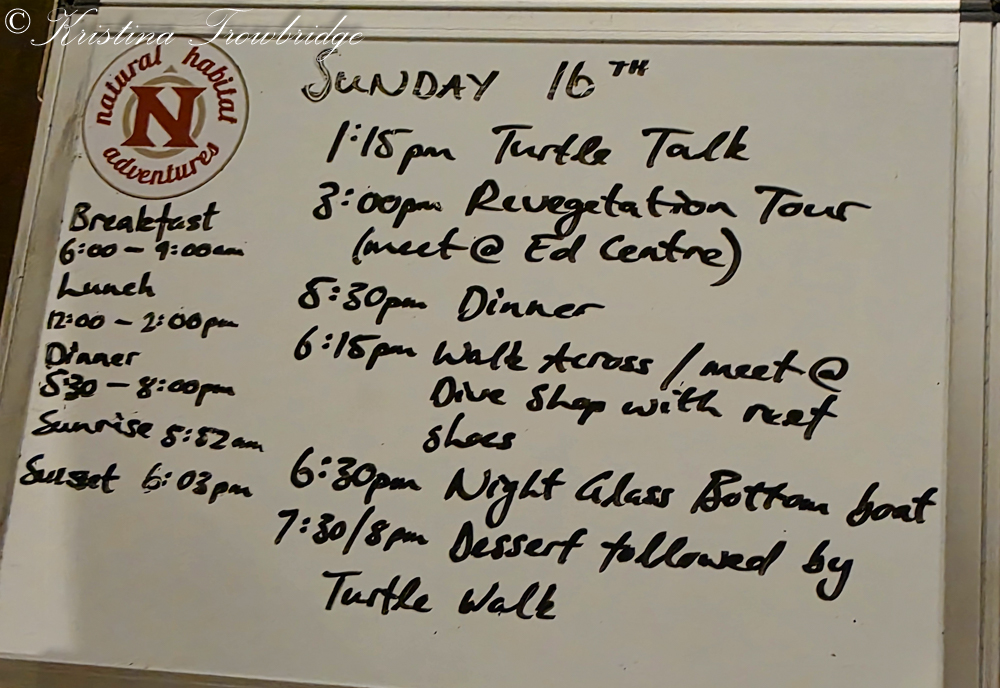 © Kristina Trowbridge
natural habitat
N
adventures
SUNDAY 16TH
1:15pm Turtle Talk
3:00pm Revegetation Tour
(meet @ Ed Centre)
5:30pm Dinner
6:15pm Walk Across / meet @
Dive Shop with reef
shoes
6:30pm Night Glass Bottom boat
7:30/8pm Dessert followed by
Turtle Walk
Breakfast
6:00 - 9:00am
Lunch
12:00 - 2:00pm
Dinner
5:30 - 8:00pm
Sunrise 5:52am
Sunset 6:03pm